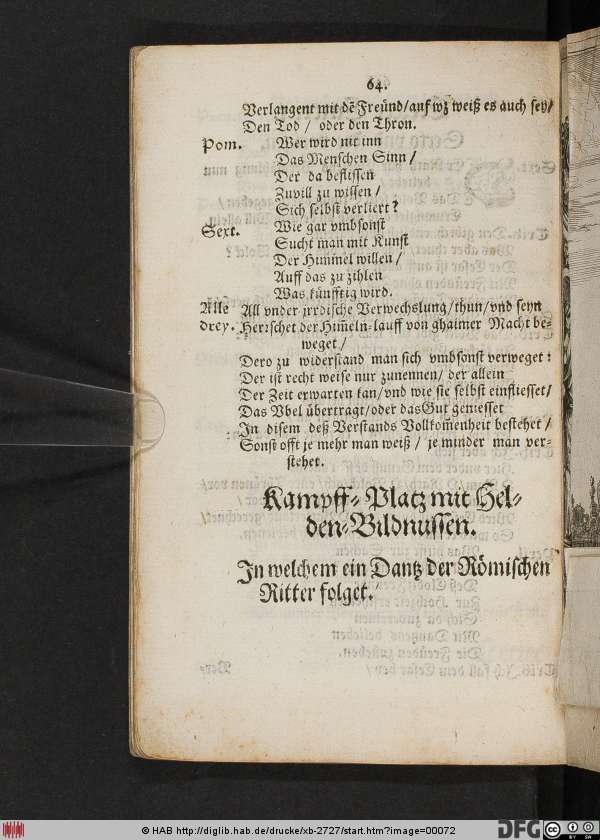 64.
Verlangent mit dẽ Freünd/auf wz weiß es auch sey/
Den Tod / oder den Thron.
Pom. Wer wird nit inn
Das Menschen Sinn /
Der da beflissen
Zuvill zu wissen /
Sich selbst verliert?
Sext. Wie gar vmbsonst
Sucht man mit Kunst
Der Himmel willen /
Auff das zu zihlen
Was künfftig wird.
Alle All vnder jrrdische Verwechslung/thun/vnd seyn
drey. Herrschet der Him̃eln-lauff von ghaimer Macht be-
weget /
Dero zu widerstand man sich vmbsonst verweget:
Der ist recht weise nur zunennen/ der allein
Der Zeit erwarten kan/vnd wie sie selbst einfliesset/
Das Vbel übertragt/oder das Gut geniesset
In disem deß Verstands Vollkom̃enheit bestehet /
Sonst offt je mehr man weiß / je minder man ver-
stehet.
Kampff-Platz mit Hel-
den-Bildnussen.
In welchem ein Dantz der Römischen
Ritter folget.
© HAB http://diglib.hab.de/drucke/xb-2727/start.htm?image=00072
DFG
CC BY SA